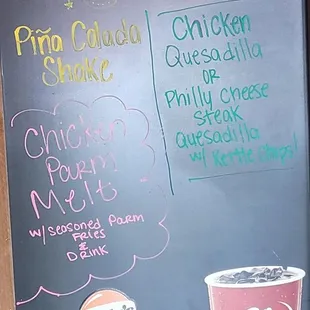 Piña Colada
Shake
Chicken
Parm
Melt
w/ Seasoned Parm
Fries
&
Drink
Chicken
Quesadilla
OR
Philly Cheese
Steak
Quesadilla
w/ Kettle Chips!